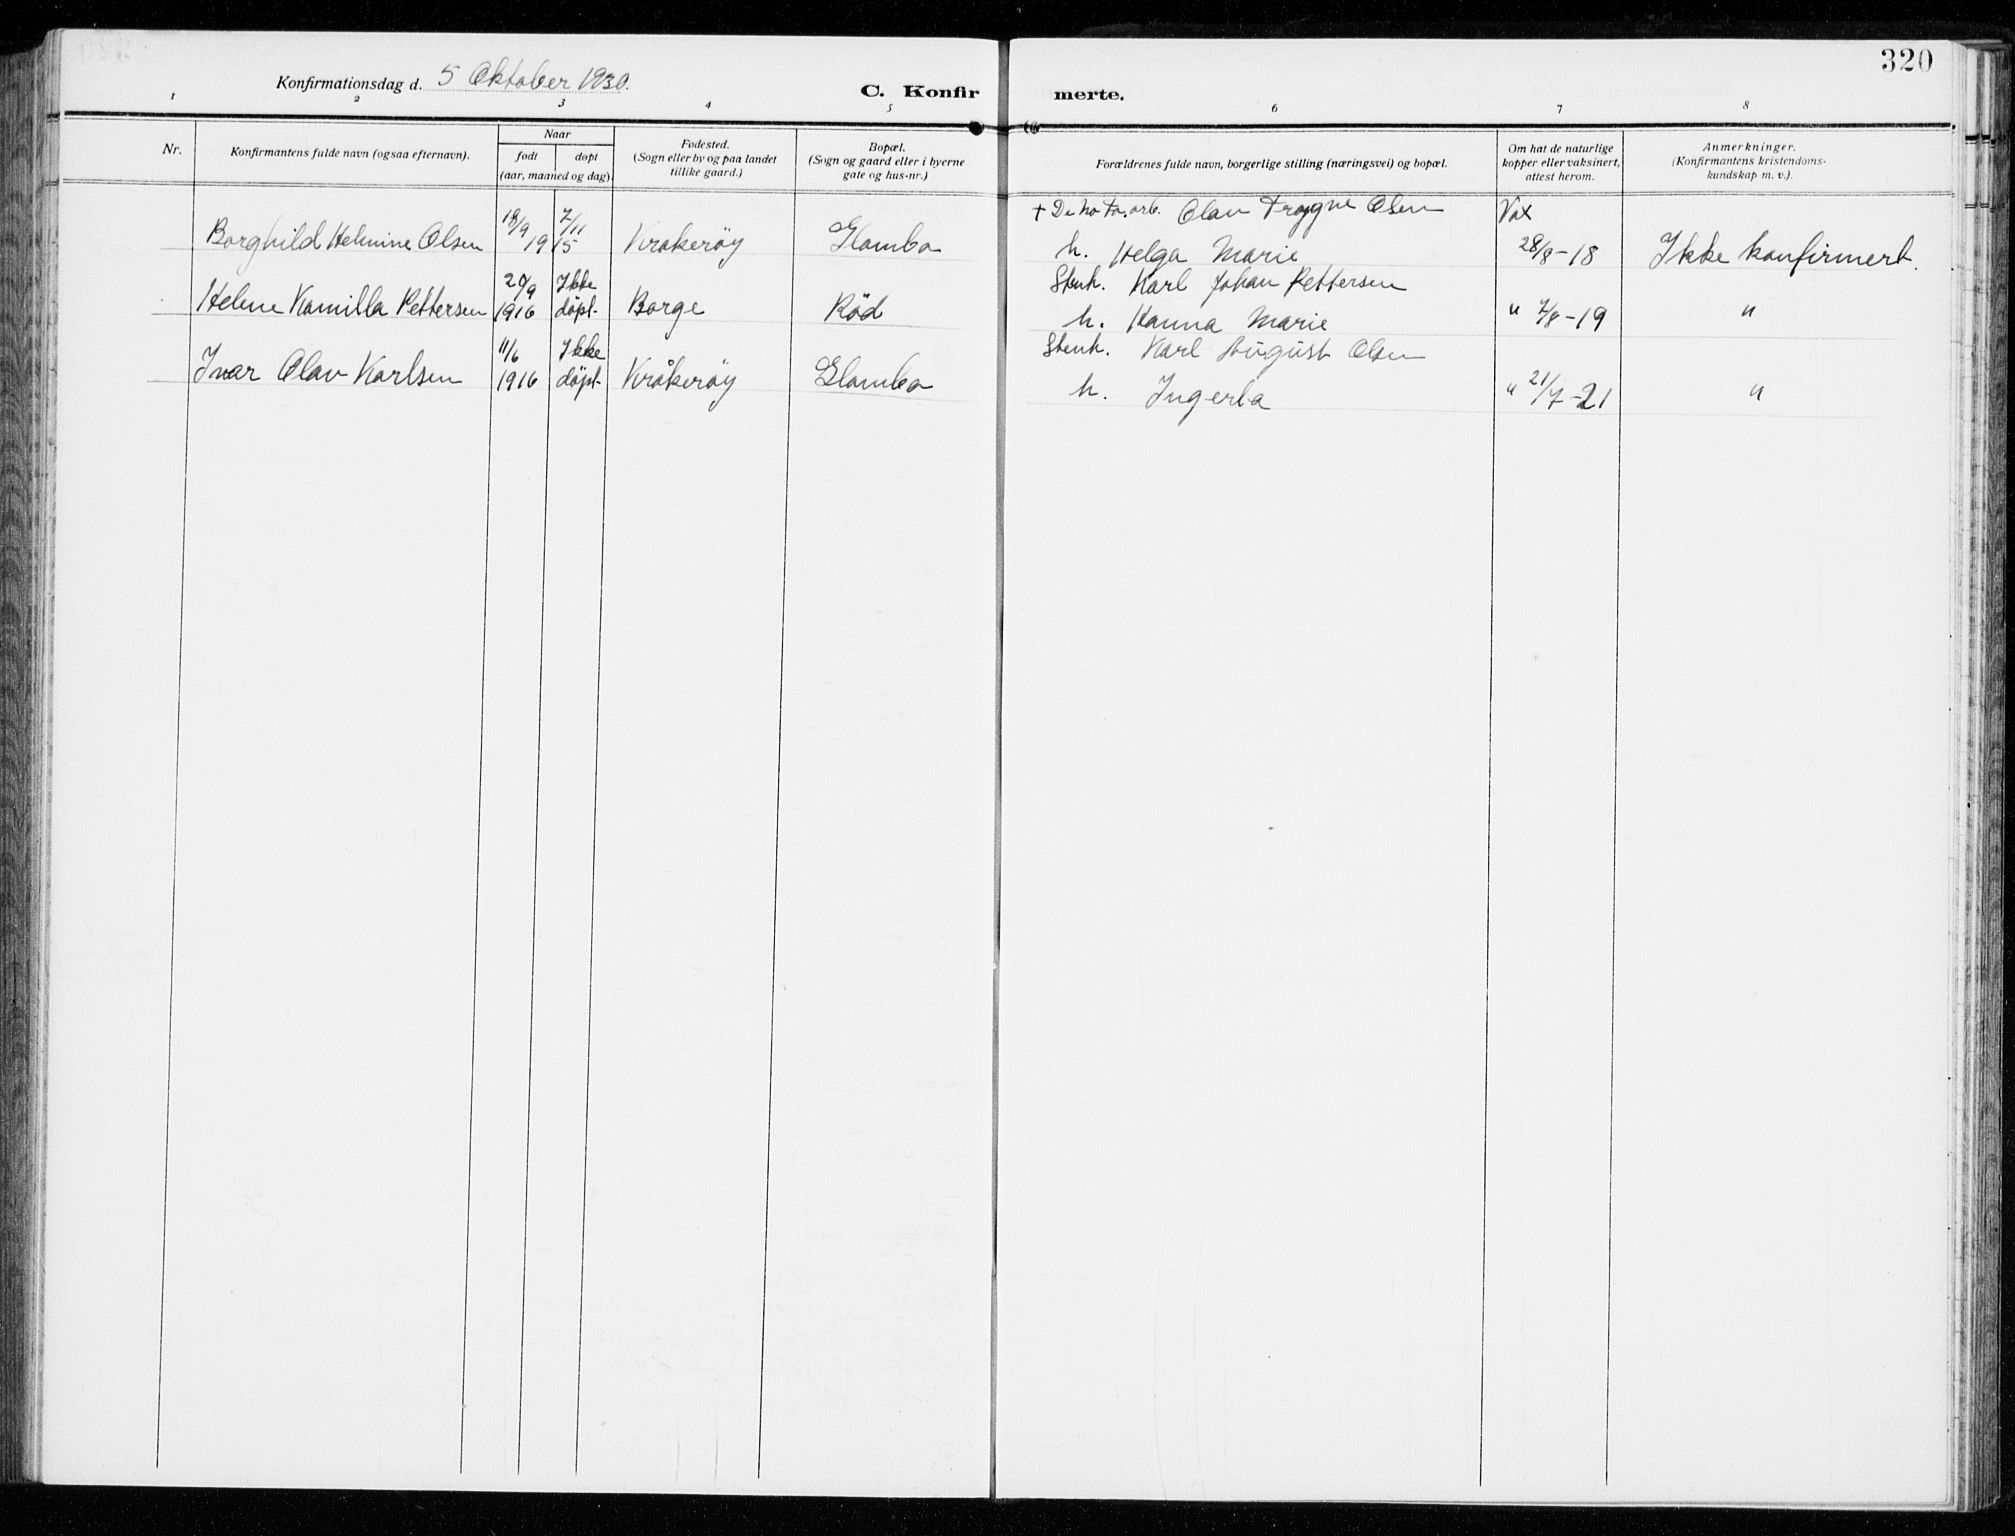 320
Konfirmationsdag d. 5 Oktober 1930.
C. Konfir merte.
1 2 3 4 5 6 7 8
Nr.
Konfirmantens fulde navn (ogsaa efternavn).
Naar
født døpt
(aar, maaned og dag).
Fødested.
(Sogn eller by og paa landet
tillike gaard.)
Bopæl.
(Sogn og gaard eller i byerne
gate og hus-nr.)
Forældrenes fulde navn, borgerlige stilling (næringsvei) og bopæl.
Om hat de naturlige
kopper eller vaksinert,
attest herom.
Anmerkninger.
(Konfirmantens kristendoms-
kundskap m. v.).
18/9 7/11 + De No Fa. arb. Olav Trygve Olsen Vax
Borghild Helmine Olsen 1915 Krakerøy Glombo h. Helga Marie 28/8-18 Ikke konfirmert.
20/9 Ikke Stenh. Karl Johan Pettersen
Helene Kamilla Pettersen 1916 døpt- Borge Rød h. Hanna Marie " 7/8-19 "
11/6 Ikke Stenh. Karl August Olsen
Ivar Olav Karlsen 1916 døpt- Kråkerøy Glombo h. Ingerba " 21/7-21 "